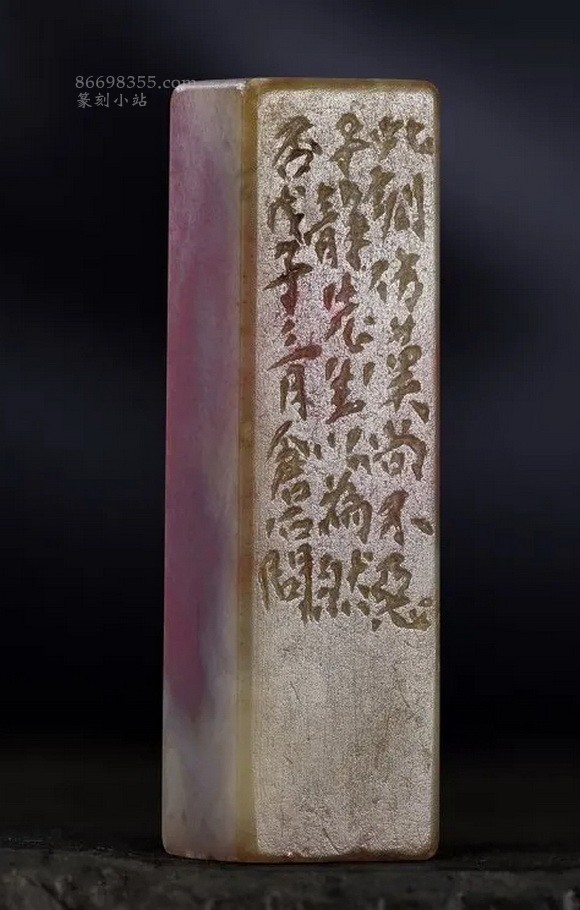 86698355.com
篆刻小站
此刻仿漢尚不惡
子先生以為然
否戊子三月倉石問